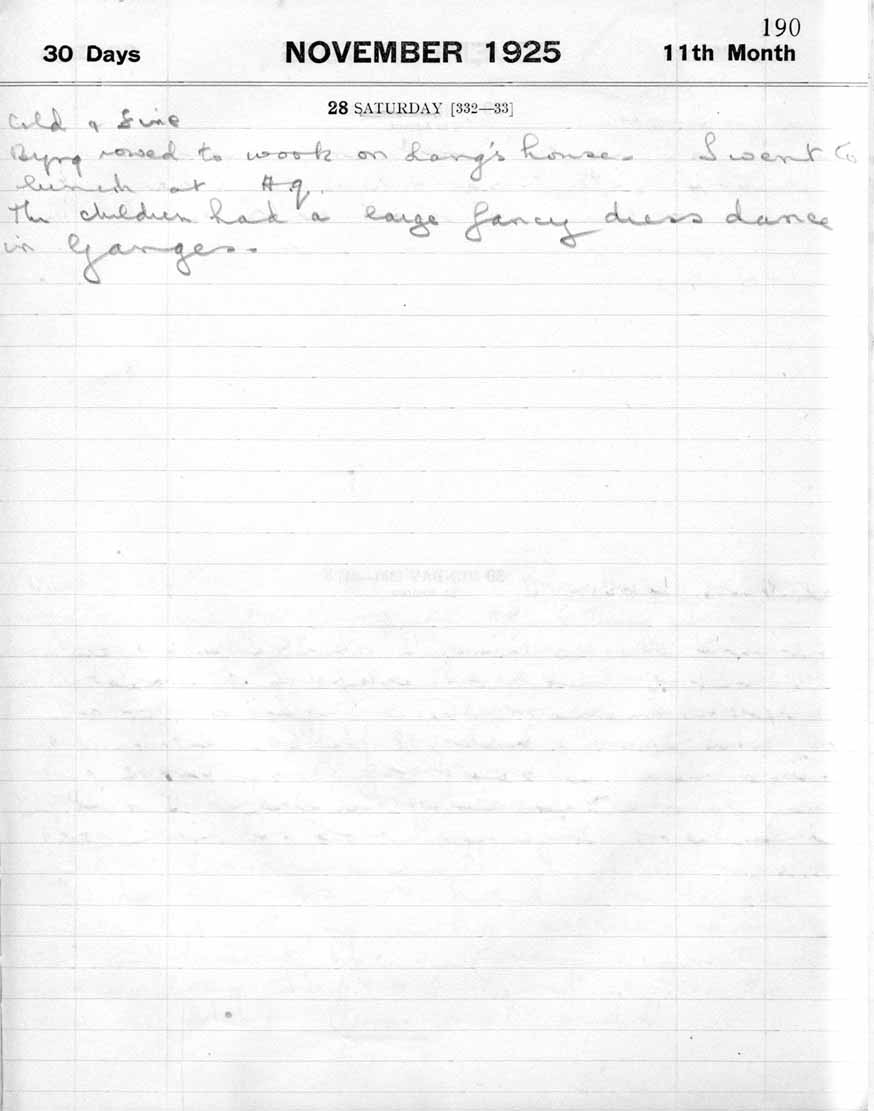 190
30 Days NOVEMBER 1925 11th Month
28 SATURDAY [332—33]
Cold & fine
rowed to work on Lang's house. I went to
lunch at Hq.
The children had a large fancy dress dance
in Ganges.